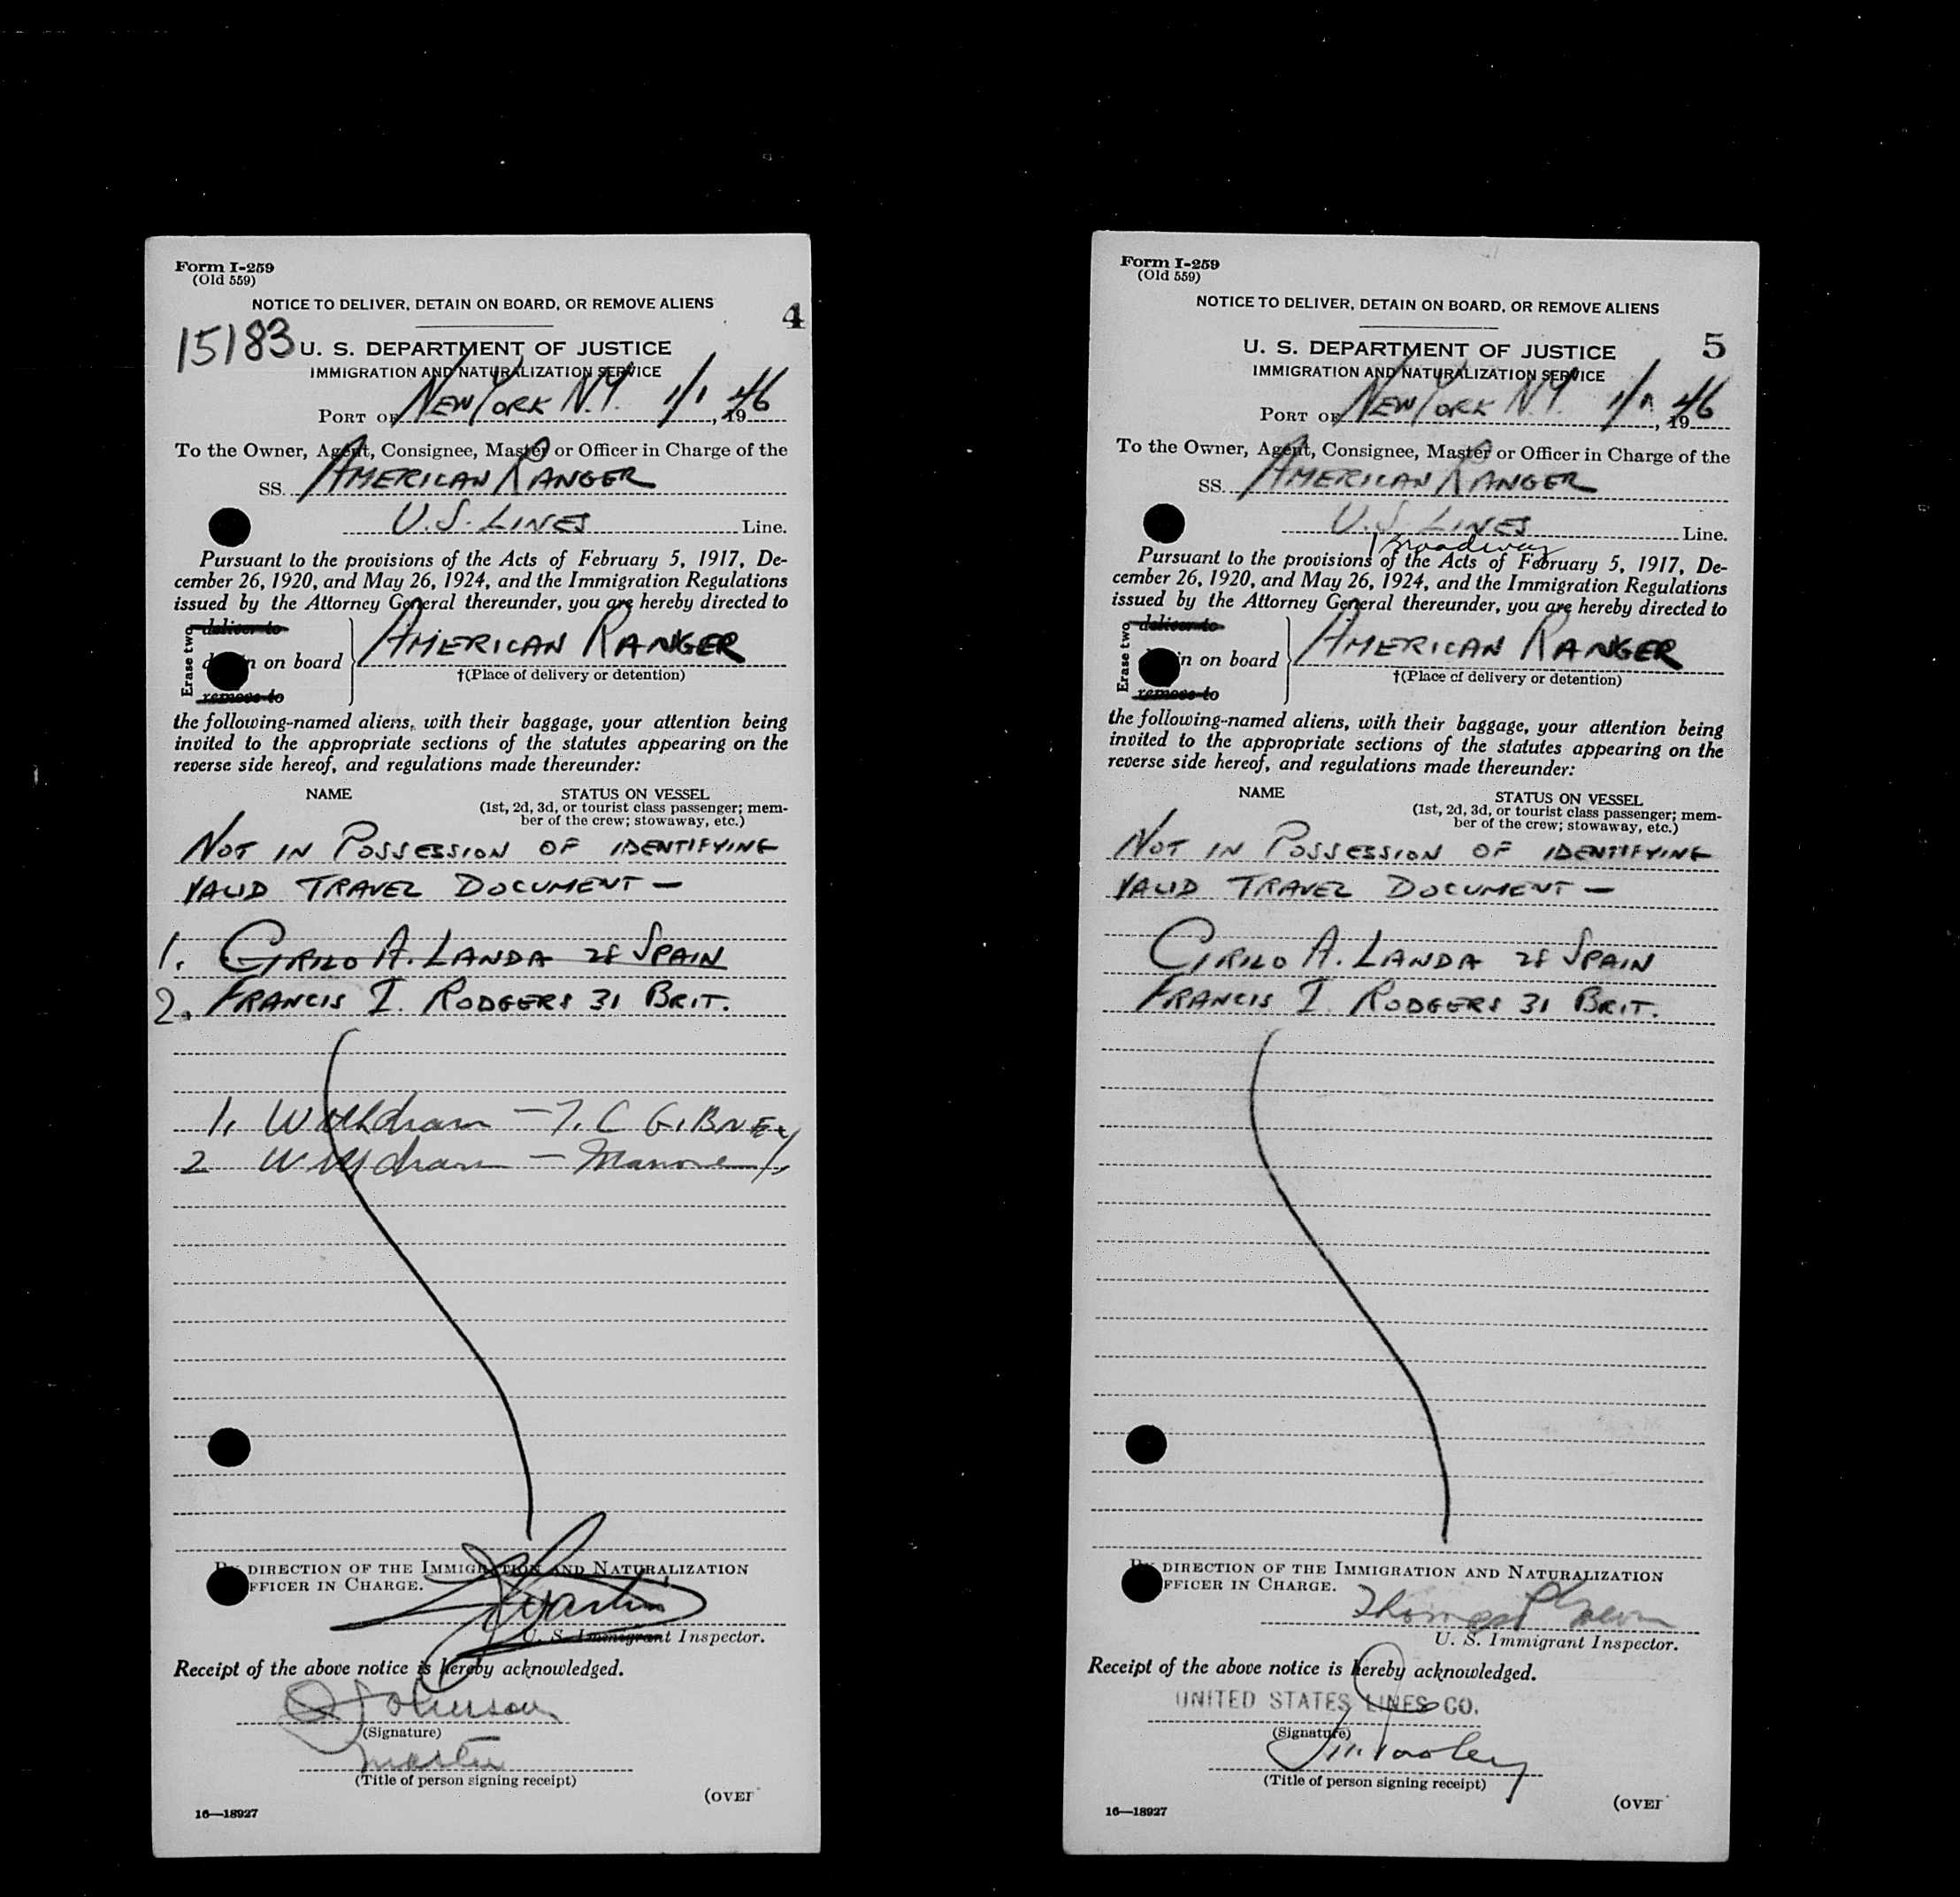 Form I-259
(Old 559)
NOTICE TO DELIVER, DETAIN ON BOARD, OR REMOVE ALIENS
4
15183
U. S. DEPARTMENT OF JUSTICE
IMMIGRATION AND NATURALIZATION SERVICE
PORT OF NEW YORK N.Y. 1/1, 1946
To the Owner, Agent, Consignee, Master or Officer in Charge of the
SS. AMERICAN RANGER
U.S. LINES Line.
Pursuant to the provisions of the Acts of February 5, 1917, De-
cember 26, 1920, and May 26, 1924, and the Immigration Regulations
issued by the Attorney General thereunder, you are hereby directed to
Erase two
deliver to
on board
remove to
AMERICAN RANGER
†(Place of delivery or detention)
the following-named aliens, with their baggage, your attention being
invited to the appropriate sections of the statutes appearing on the
reverse side hereof, and regulations made thereunder:
NAME STATUS ON VESSEL
(1st, 2d, 3d, or tourist class passenger; mem-
ber of the crew; stowaway, etc.)
NOT IN POSSESSION OF IDENTIFYING
VALID TRAVEL DOCUMENT —
1. CIRILO A. LANDA 28 SPAIN
2. FRANCIS I. RODGERS 31 BRIT.
1. Withdrawn — T. C GIBNEY
2 Withdrawn —
BY DIRECTION OF THE IMMIGRATION AND NATURALIZATION
OFFICER IN CHARGE.
U. S. Immigrant Inspector.
Receipt of the above notice is hereby acknowledged.
Johnson
(Signature)
master
(Title of person signing receipt)
(OVER
16—18927
Form I-259
(Old 559)
NOTICE TO DELIVER, DETAIN ON BOARD, OR REMOVE ALIENS
5
U. S. DEPARTMENT OF JUSTICE
IMMIGRATION AND NATURALIZATION SERVICE
PORT OF NEW YORK N.Y. 1/1, 1946
To the Owner, Agent, Consignee, Master or Officer in Charge of the
SS. AMERICAN RANGER
U.S. LINES Line.
1 Broadway
Pursuant to the provisions of the Acts of February 5, 1917, De-
cember 26, 1920, and May 26, 1924, and the Immigration Regulations
issued by the Attorney General thereunder, you are hereby directed to
Erase two
deliver to
on board
remove to
AMERICAN RANGER
†(Place of delivery or detention)
the following-named aliens, with their baggage, your attention being
invited to the appropriate sections of the statutes appearing on the
reverse side hereof, and regulations made thereunder:
NAME STATUS ON VESSEL
(1st, 2d, 3d, or tourist class passenger; mem-
ber of the crew; stowaway, etc.)
NOT IN POSSESSION OF IDENTIFYING
VALID TRAVEL DOCUMENT —
CIRILO A. LANDA 28 SPAIN
FRANCIS I. RODGERS 31 BRIT.
BY DIRECTION OF THE IMMIGRATION AND NATURALIZATION
OFFICER IN CHARGE.
Thomas
U. S. Immigrant Inspector.
Receipt of the above notice is hereby acknowledged.
UNITED STATES LINES CO.
(Signature)
(Title of person signing receipt)
(OVER
16—18927